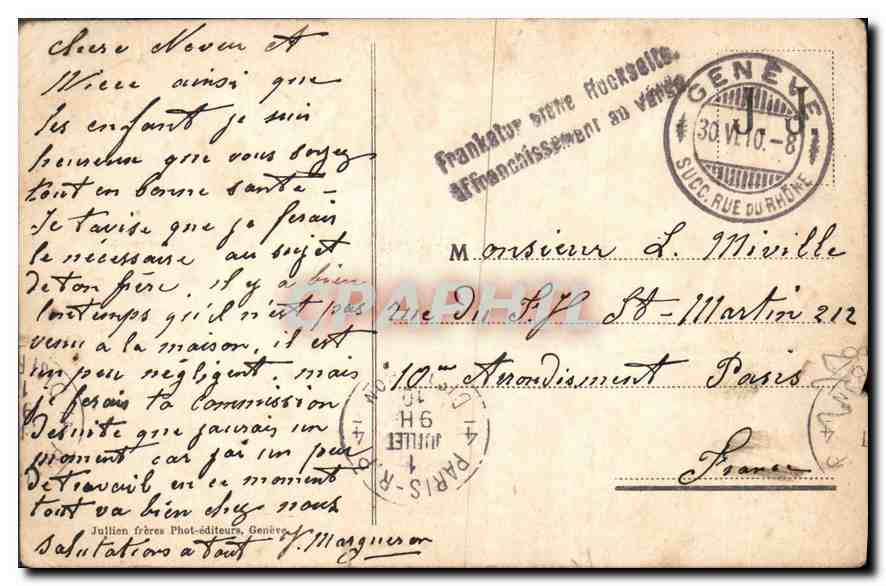 chere Neveu et
Niece ainsi que
les enfant je suis
heureux que vous soyez
tout en bonne santé -
Je t'avise que je ferais
le nécessaire au sujet
de ton frère, il y a bien
lontemps qu'il n'est pas
venu a la maison, il est
un peu négligent, mais
je ferais ta commission
desuite que j'aurais un
moment car j'ai un peu
de travail en ce moment
tout va bien chez nous
salutations a tout J. Margueron
Jullien frères Phot-éditeurs, Genève.
Frankatur siehe Rückseite.
affranchissement au verso
GENÈVE
J. J.
30.VI.10.-8
SUCC. RUE DU RHÔNE
Monsieur L. Miville
rue du St-Martin 212
10me Arrondisment Paris
France
CPAPHIL
PARIS-R.P.
9H
1
JUILLET
10